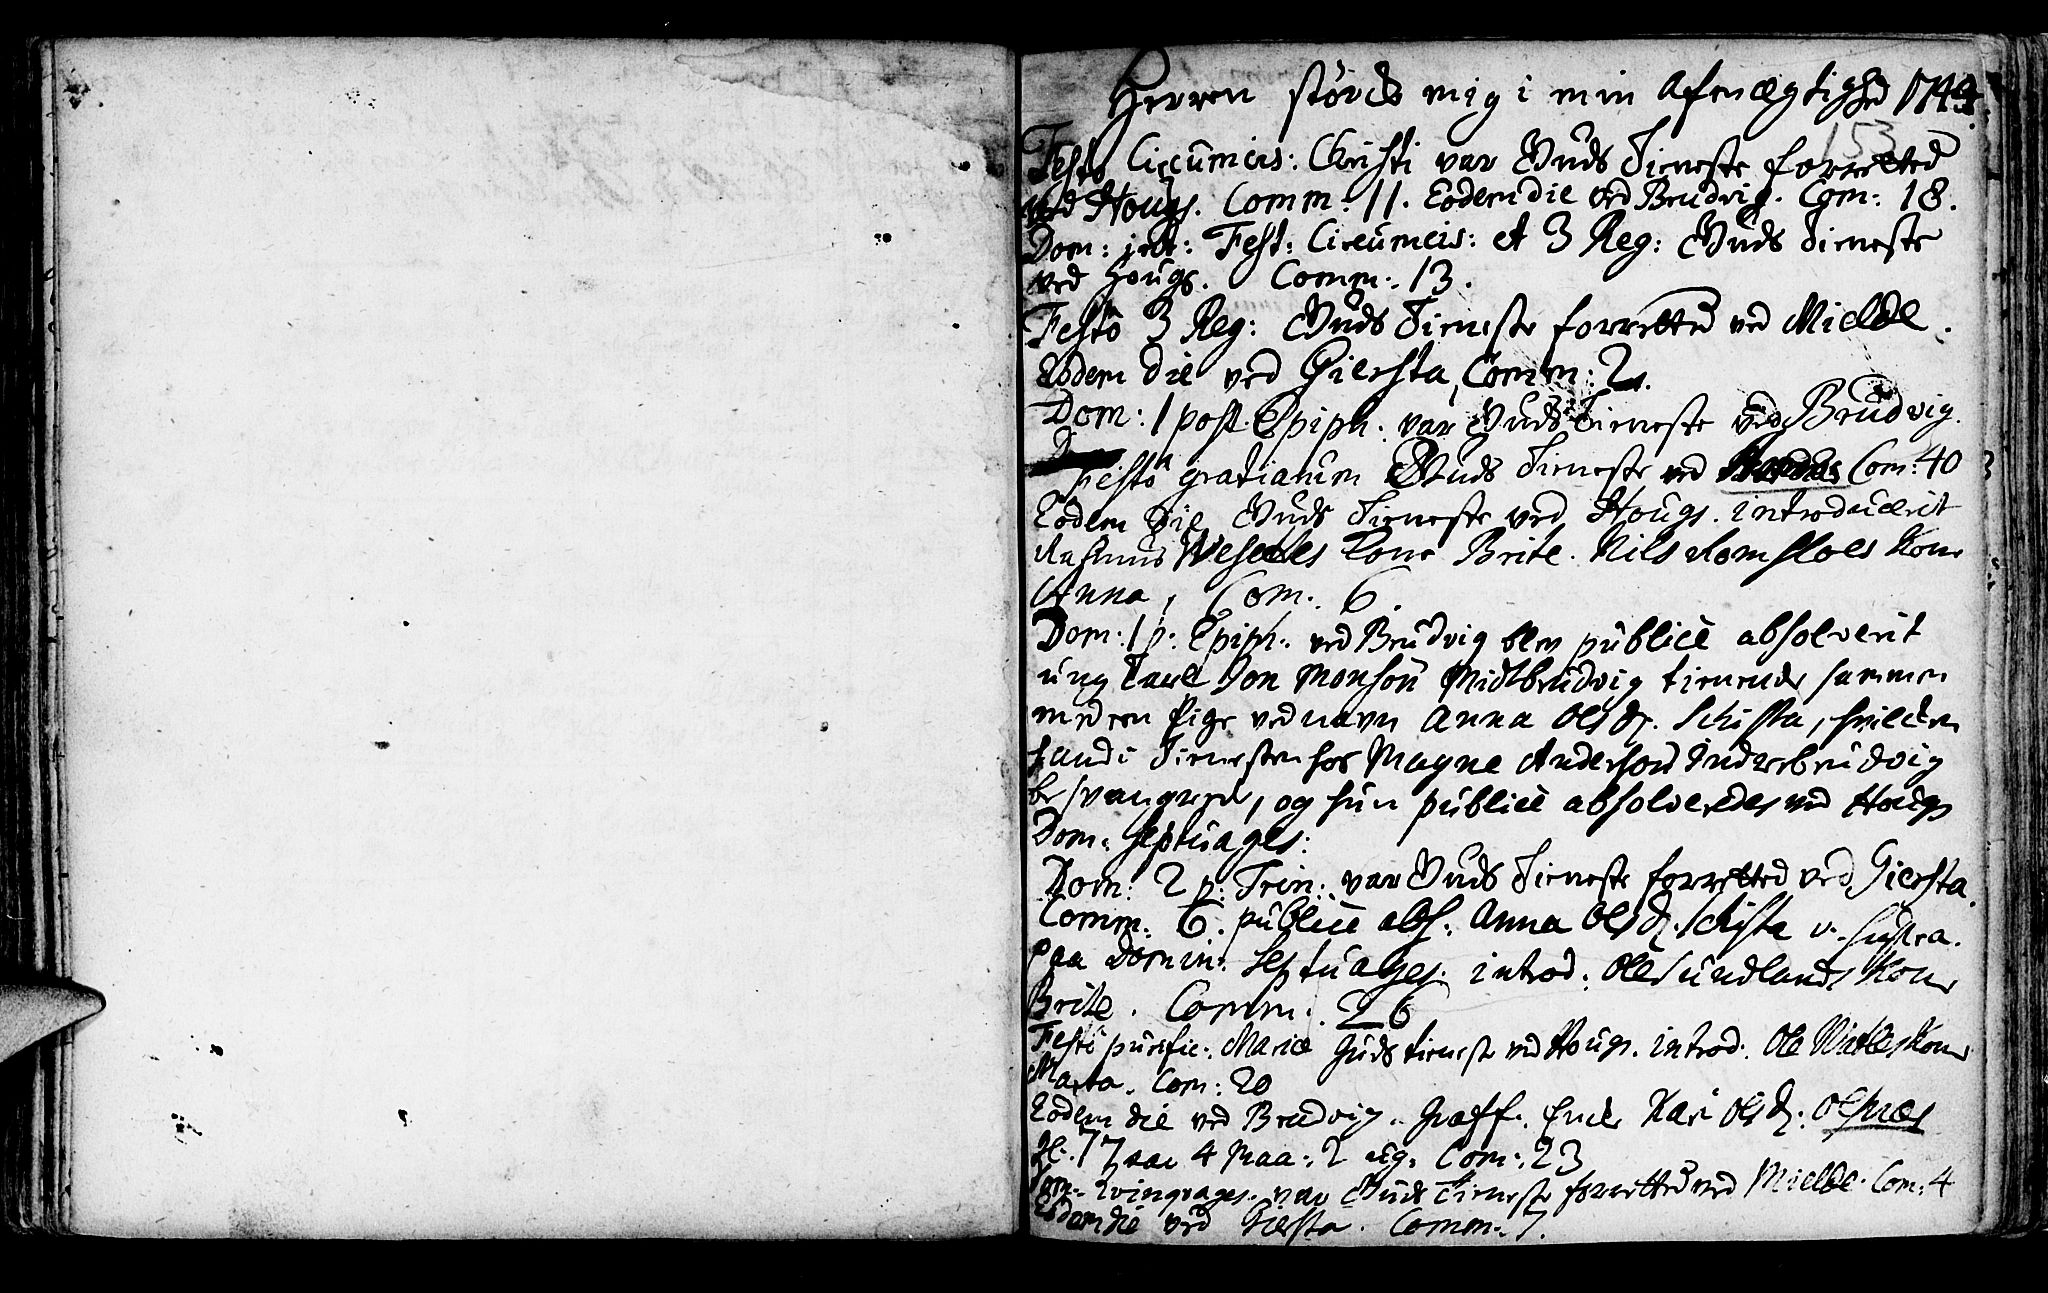 Herren støvde mig i min Afmægtighed 1744.
153
Festo Circumcis: Christi var Guds Tieneste forretted
ved Hougs. Comm: 11. Eodem die ved Brudvig. Com: 18.
Dom: int: Fest: Circumcis: et 3 Reg: Guds Tieneste
ved Hougs. Comm: 13.
Festo 3 Reg: Guds Tieneste forretted ved Mielde.
Eodem die ved Giersta, Comm: 2.
Dom: 1 post Epiph: var Guds Tieneste ved Brudvig.
Festo gratiarum Guds Tieneste ved Com: 40
Eodem Die Guds Tieneste ved Hougs. introducerit
Rasmus Kone Brite. Nils Romsloes Kone
Anna, Com: 6.
Dom: 1 p: Epiph: ved Brudvig blev publicè absolverit
ung Karl Jon Monson Midtbrudvig tienende sammen
med een Pige ved navn Anna Olsd. Schifta, hvilcken
hand i Tienesten hos Magne Anderson Inderbrudvig
besvangrede, og hun publicè absolveredes ved Hougs
Dom: Septuages:
Dom: 2 p: Trin: var Guds Tieneste forretted ved Giersta.
Comm: 6. publicè abs. Anna Olsd. Schifta v.
paa Domin: Septuages: introd: Ole Sundlands Kone
Brite. Comm: 26
Festo purific: Mariæ Guds tieneste ved Hougs. introd: Ole Kone
Marta. Com: 20
Eodem die ved Brudvig. Graff. Enche Kari Olsd. Olsnes
gl: 77 aar 4 Maa: 2 ug: Com: 23
Dom: Qvinqvages: var Guds Tieneste forretted ved Mielde. Com: 4
Eodem die ved Giersta. Comm: 7.